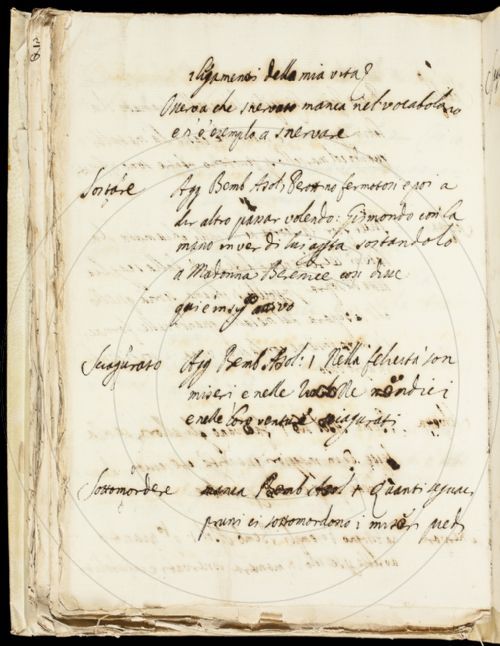 i ligamenti della mia vita?
Osserva che snervato manca nel vocabolario
e n'è esempio a snervare
Sostare Agg Bemb Asol: Perottino fermatosi e poi a
dir altro passar volendo: Gismondo con la
mano in ver di lui alzata sostandolo
a Madonna Berenice così disse
qui è in sig attivo
Sciagurato Agg Bemb Asol: 1 Nella felicità son
miseri e nelle ricchezze mendici
e nelle loro venture sciagurati
Sottomordere manca Bemb Asol 1 Quanti seguaci
pruni ci sottomordono i miseri piedi